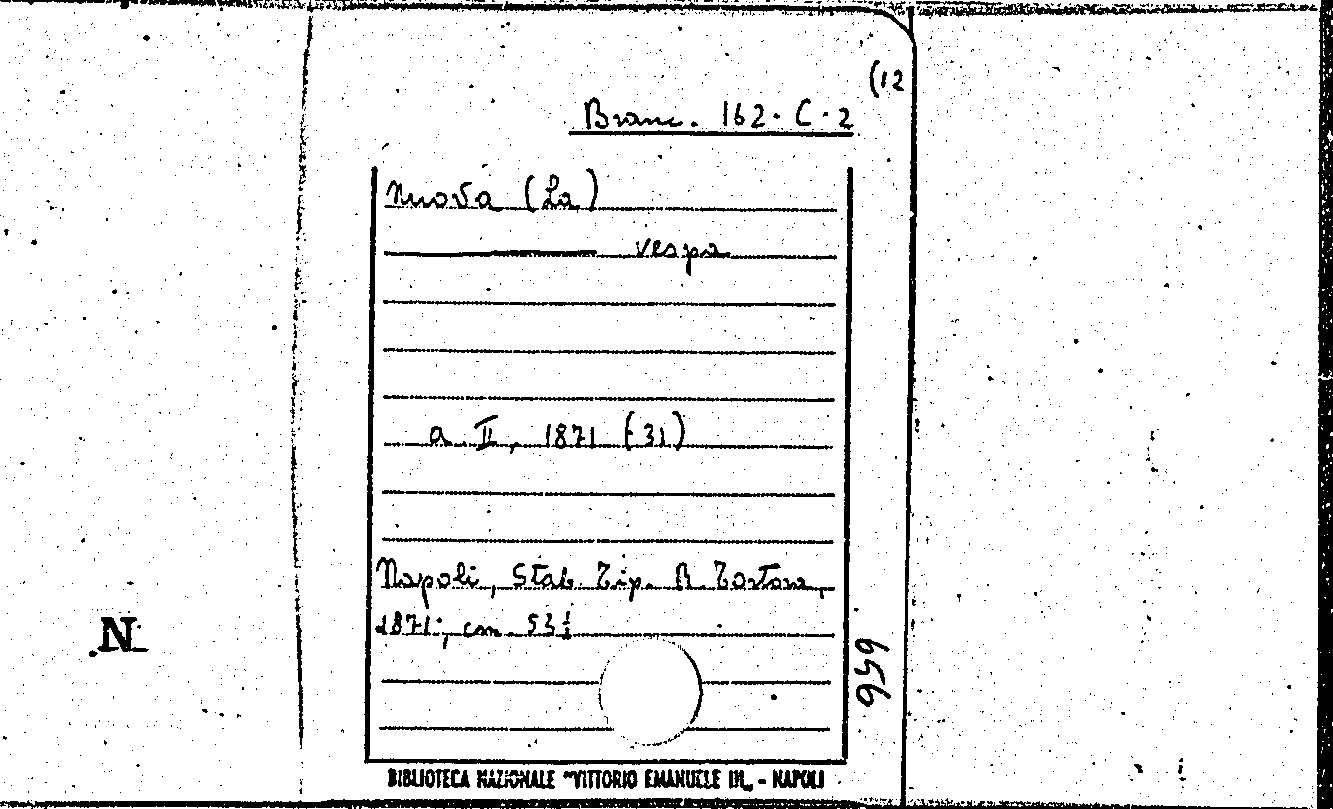 (12
Branc. 162. C. 2
Nuova (La)
vespa
a. II, 1871 (31)
Napoli, Stab. Tip. R. Tortora,
1871; cm. 53½
N
656
BIBLIOTECA NAZIONALE "VITTORIO EMANUELE III„ - NAPOLI